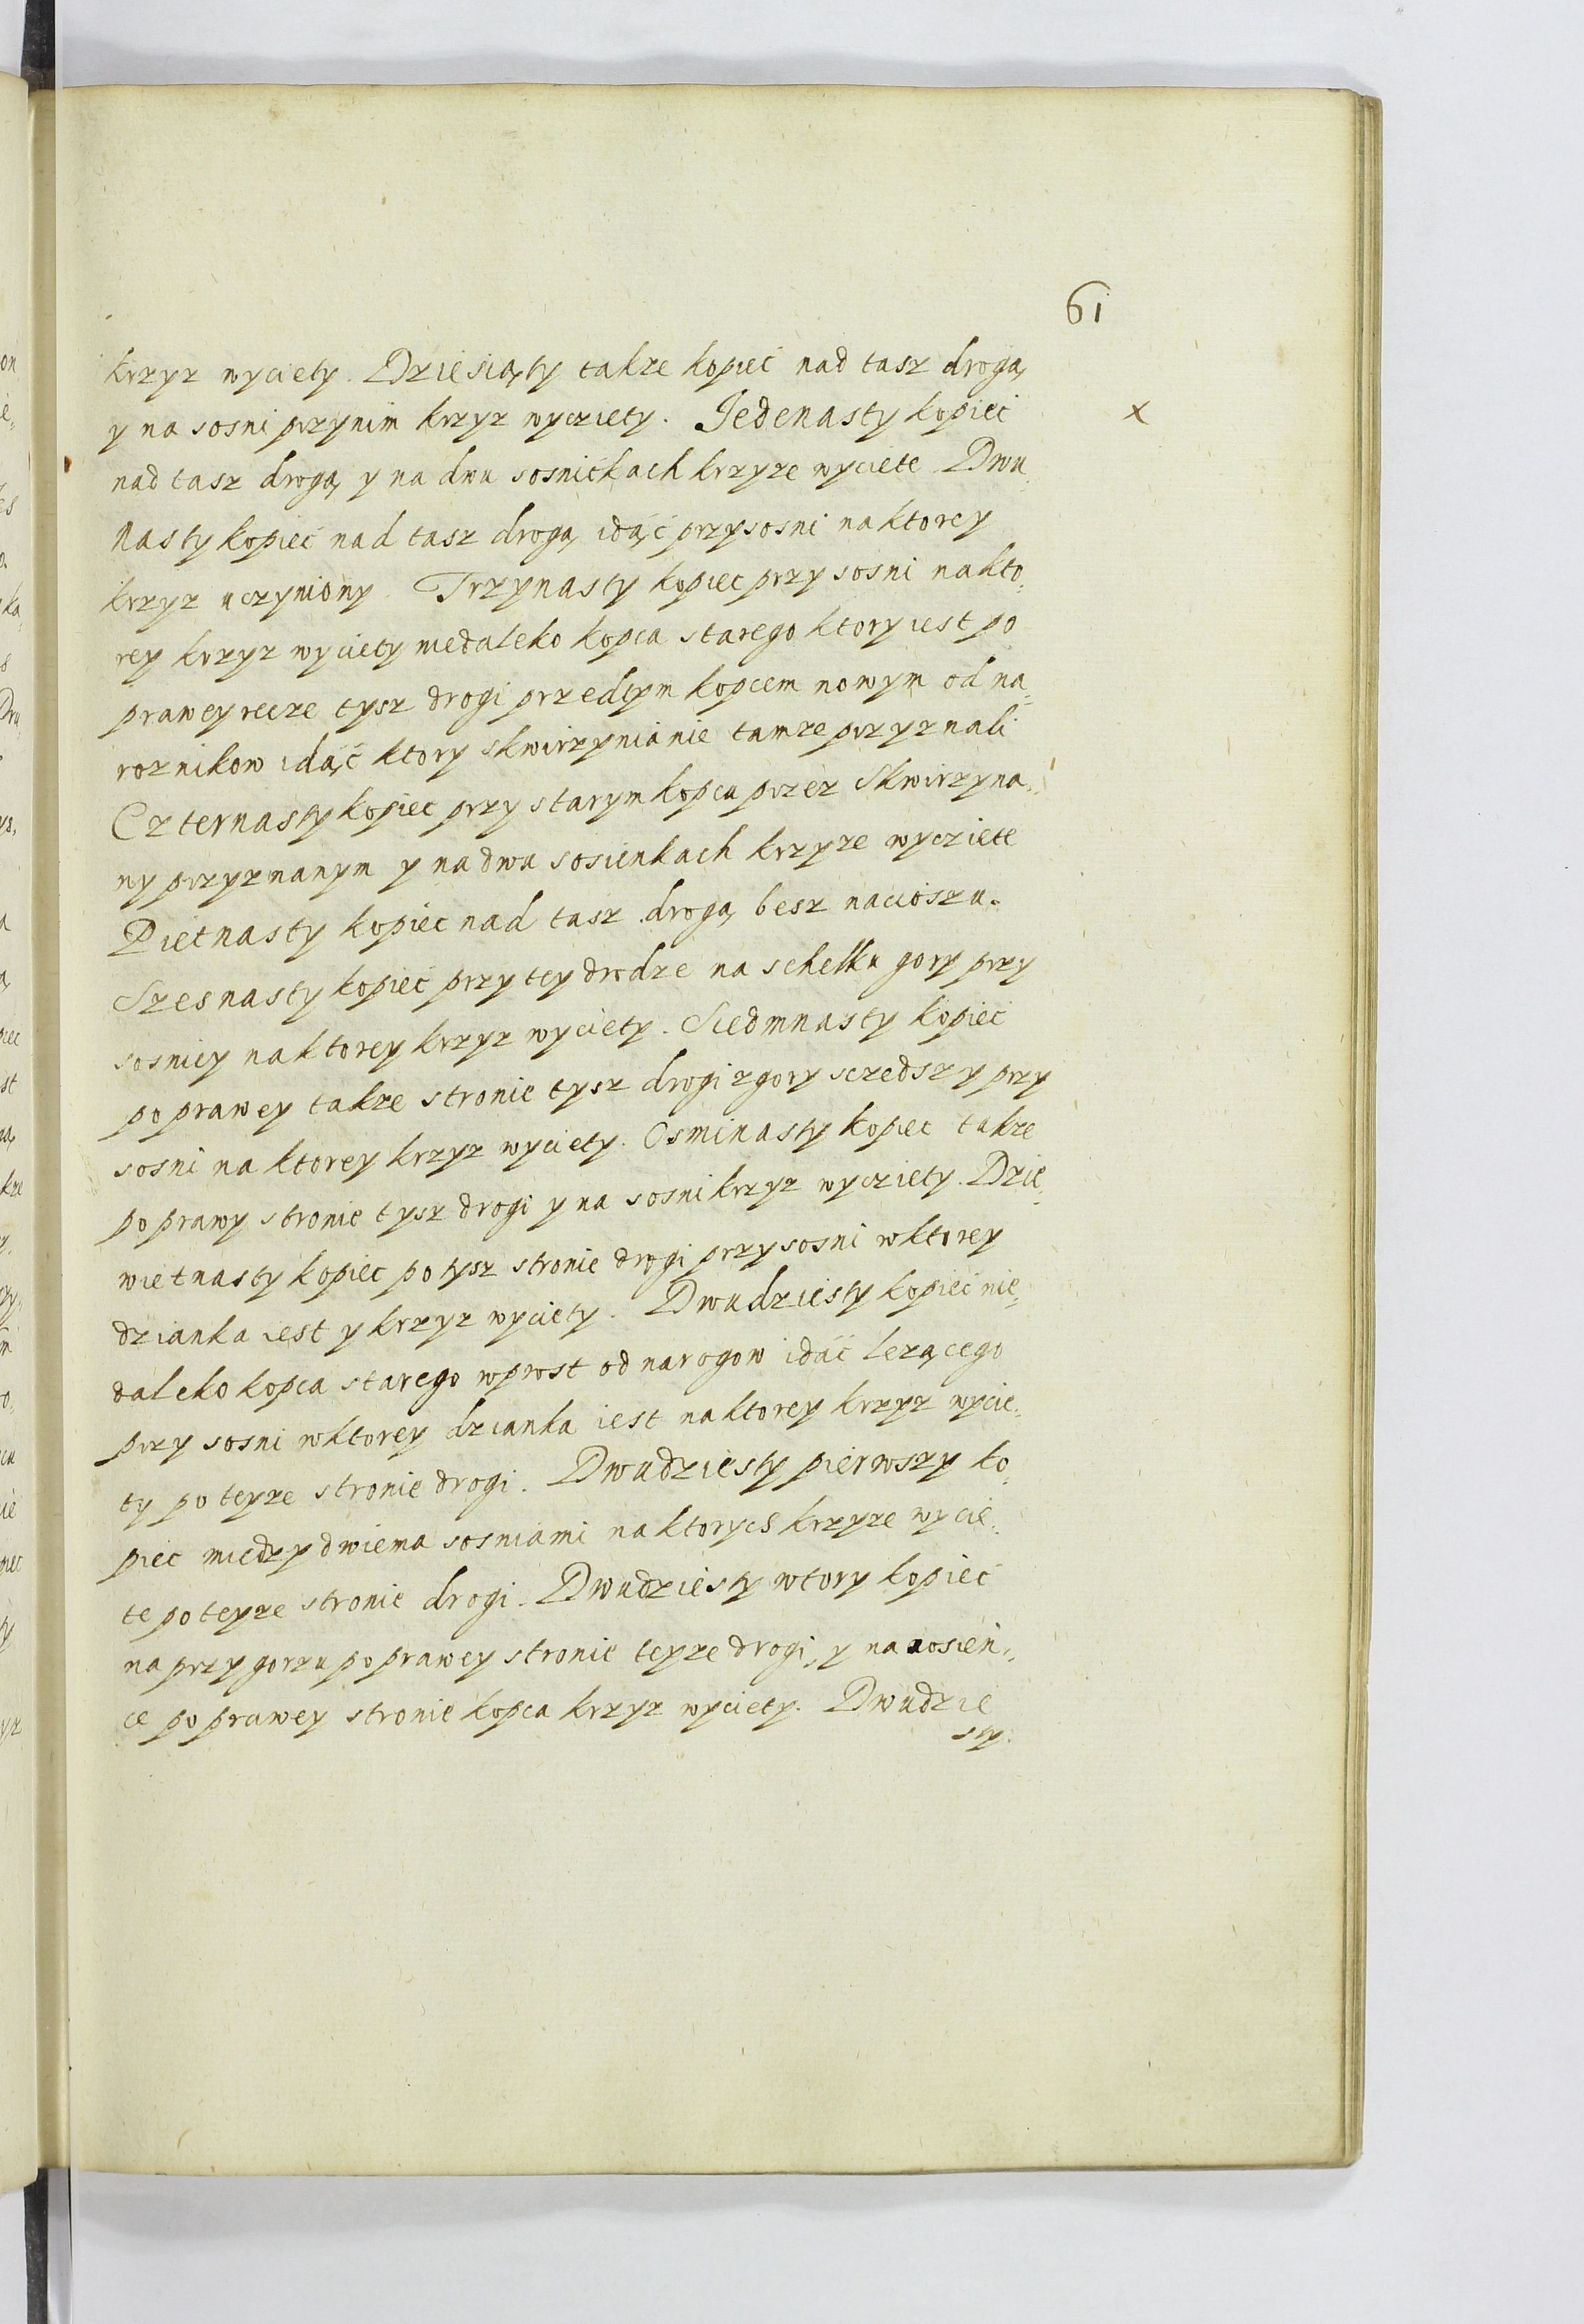 61
krzyz wyciety. Dziesiąty takze kopiec nad tasz drogą
y na sosni przynim krzyz wycziety. Jedenasty kopiec
x
nad tasz drogą y na dwu sosnickach krzyze wyciete Dwu
nasty kopiec nad tasz drogą idąc przysosni naktorey
krzyz uczyniony. Trzynasty kopiec przy sosni nakto-
rey krzyz wyciety niedaleko kopca starego ktory iest po
prawey recze tysz drogi przedtym kopcem nowym od na-
roznikow idąc ktory skwirzynianie tamze przyznali
Czternasty kopiec przy starym kopcu przez Skwirzyna-
ny przyznanym y nadwu sosienkach krzyze wycziete
Pietnasty kopiec nad tasz drogą besz nacioszu.
Szesnasty kopiec przytey drodze na schelku gory przy
sosniey naktorey krzyz wyciety. Siedmnasty kopiec
poprawey takze stronie tysz drogi zgory sczedszy przy
sosni na ktorey krzyz wyciety. Osminasty kopiec takze
poprawy stronie tysz drogi y na sosni krzyz wycziety. Dzie-
wietnasty kopiec potysz stronie drogi przysosni wktorey
dzianka iest y krzyz wyciety. Dwudziesty kopiec nie-
daleko kopca starego wprost od narogow idąc lezącego
przy sosni wktorey dzianka iest naktorey krzyz wycie-
ty poteyze stronie drogi. Dwudziesty pierwszy ko-
piec miedzy dwiema sosniami naktorych krzyze wycie-
te poteyze stronie drogi. Dwudziesty wtory kopiec
na przygorzu poprawey stronie teyze drogi, y na sosien-
ce poprawey stronie kopca krzyz wyciety. Dwudzie
sty.